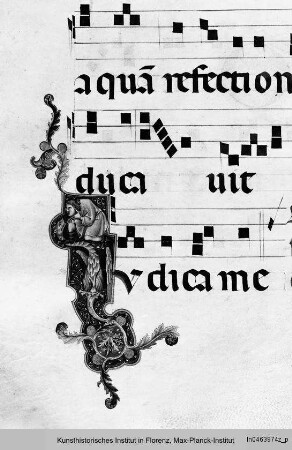 a quā refection
duca uit
vdica me
Kunsthistorisches Institut in Florenz, Max-Planck-Institut
ln0463974z_p